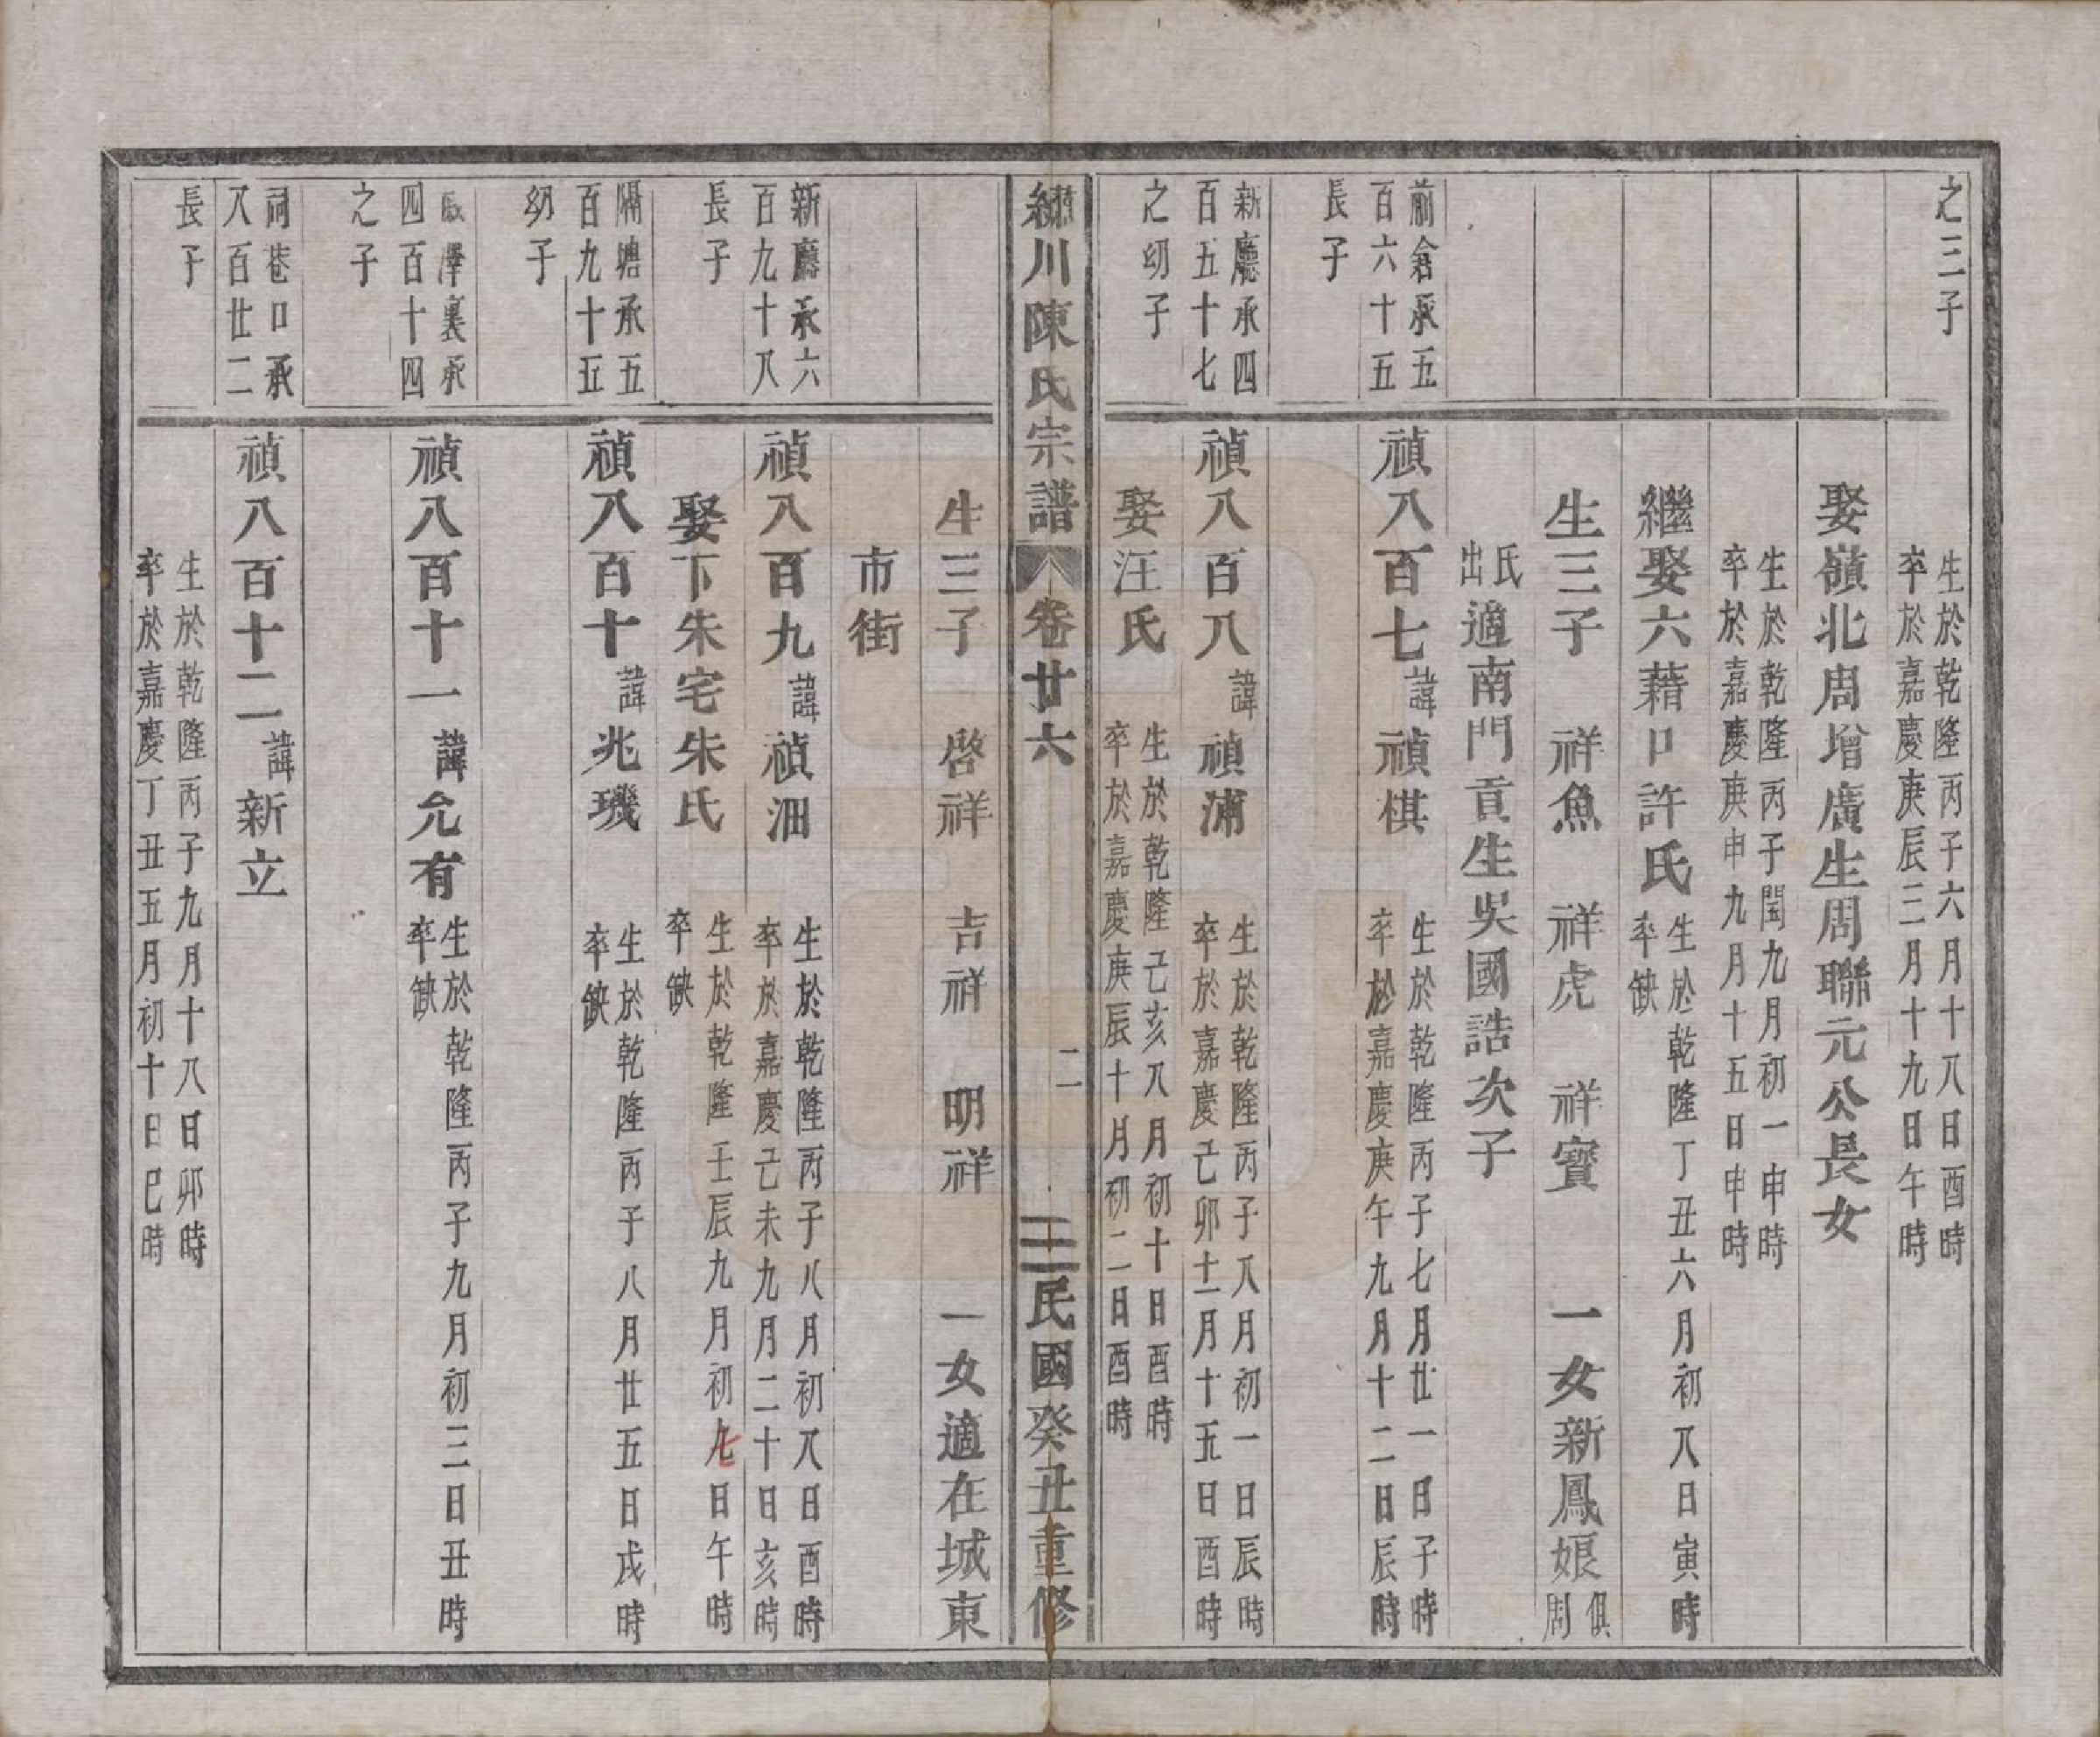 之三子
生於乾隆丙子六月十八日酉時
卒於嘉慶庚辰三月十九日午時
娶嶺北周增廣生周聯元公長女
生於乾隆丙子閏九月初一申時
卒於嘉慶庚申九月十五日申時
繼娶六藉口許氏
生於乾隆丁丑六月初八日寅時
卒缺
生三子 祥魚 祥虎 祥寶 一女新鳳娘
俱周
氏出
適南門貢生吳國誥次子
前倉承五
百六十五
長子
禎八百七諱禎棋
生於乾隆丙子七月廿一日子時
卒於嘉慶庚午九月十二日辰時
新廳承四
百五十七
之幼子
禎八百八諱禎浦
生於乾隆丙子八月初一日辰時
卒於嘉慶己卯十一月十五日酉時
娶汪氏
生於乾隆己亥八月初十日酉時
卒於嘉慶庚辰十月初二日酉時
繡川陳氏宗譜 卷廿六 二 民國癸丑重修
生三子 啓祥 吉祥 明祥 一女適在城東
市街
新廳承六
百九十八
長子
禎八百九諱禎沺
生於乾隆丙子八月初八日酉時
卒於嘉慶己未九月二十日亥時
娶下朱宅朱氏
生於乾隆壬辰九月初七日午時
卒缺
隔塘承五
百九十五
幼子
禎八百十諱兆璣
生於乾隆丙子八月廿五日戌時
卒缺
澤裏承
四百十四
之子
禎八百十一諱允有
生於乾隆丙子九月初三日丑時
卒缺
祠巷口承
八百廿二
長子
禎八百十二諱新立
生於乾隆丙子九月十八日卯時
卒於嘉慶丁丑五月初十日巳時